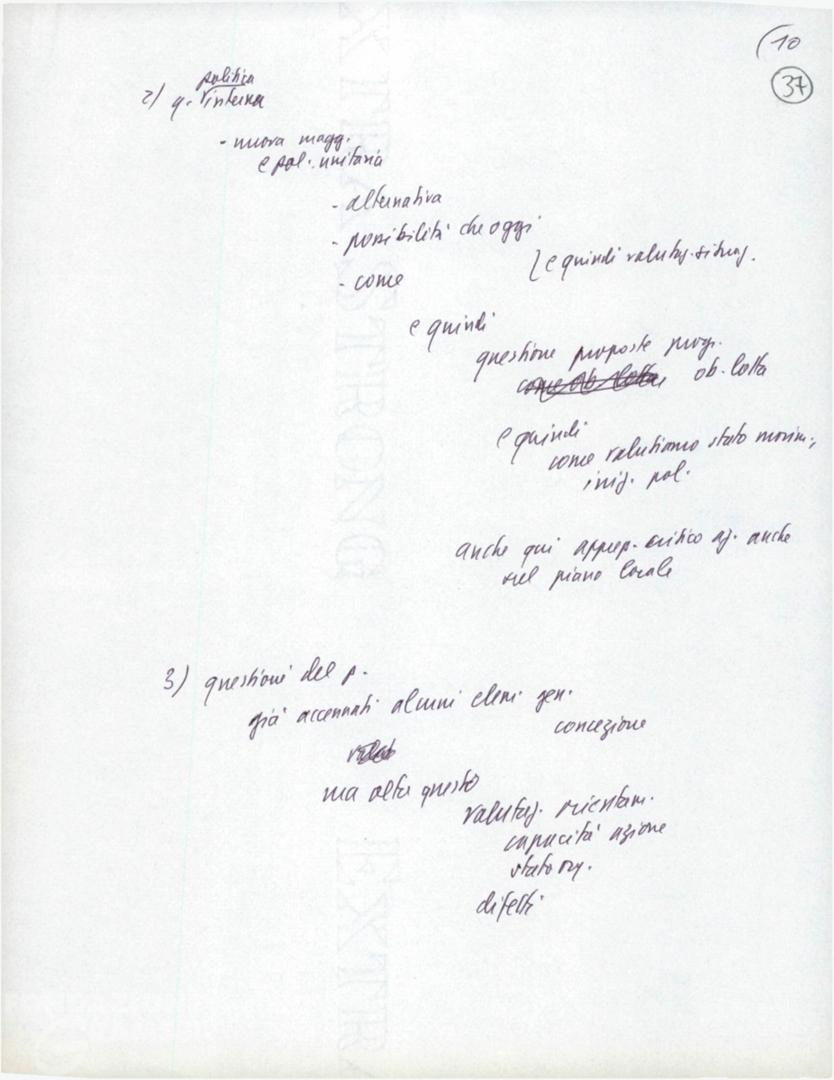 (10
37
politica
2) q. interna
- nuova magg.
e pol. unitaria
- alternativa
- possibilità che oggi
} e quindi valutaz. situaz.
- come
e quindi
questione proposte progr.
come ob. lotta ob. lotta
e quindi
come valutiamo stato movim.,
iniz. pol.
anche qui approp. critico az. anche
nel piano locale
3) questioni del p.
già accennati alcuni elem. gen.
concezione
ma oltre questo
valutaz. orientam.
capacità azione
stato org.
difetti